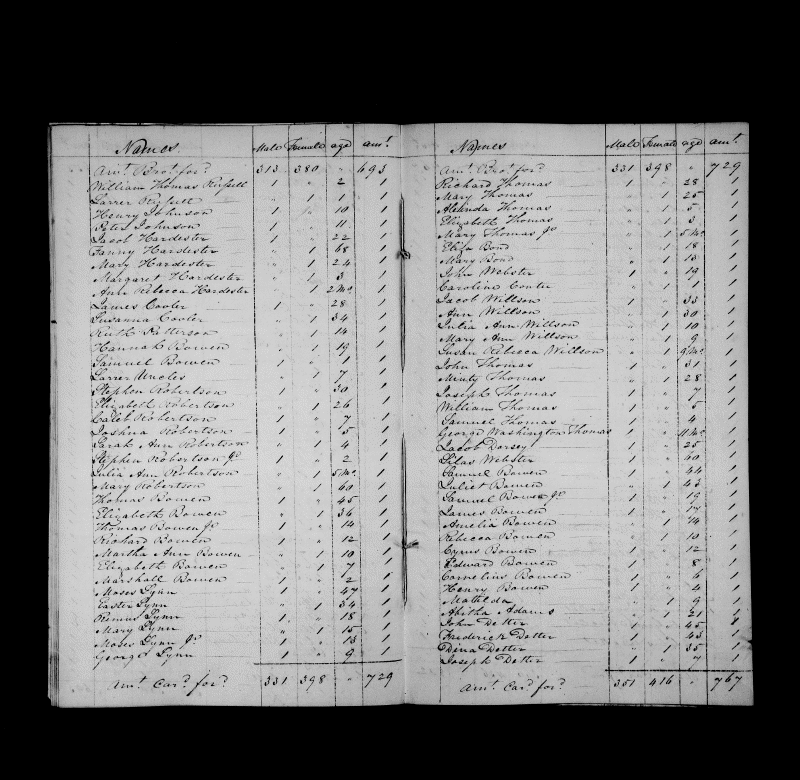 Names. Male Female age amt.
Amt. Brot. for.d 313 380 " 693
William Thomas 1 " 2 1
Larrer " 1 1 1
Henry Johnson 1 " 10 1
Peter Johnson 1 " 11 1
Jacob Hardester 1 " 22 1
Fanny Hardester " 1 68 1
Mary Hardester " 1 24 1
Margaret Hardester " 1 3 1
Ann Rebecca Hardester " 1 2 Mo. 1
James Cooler 1 " 28 1
Susanna Cooler " 1 34 1
Ruth Patterson " 1 14 1
Hannah Bowen " 1 19 1
Samuel Bowen 1 " 1 1
Larrer Uncles " 1 7 1
Stephen Robertson 1 " 30 1
Elizabeth Robertson " 1 26 1
Calet Robertson 1 " 7 1
Joshua Robertson 1 " 5 1
Sarah Ann Robertson " 1 4 1
Stephen Robertson Jr. 1 " 2 1
Julia Ann Robertson " 1 5 Mo. 1
Mary Robertson " 1 60 1
Thomas Bowen 1 " 45 1
Elizabeth Bowen " 1 36 1
Thomas Bowen Jr. 1 " 14 1
Richard Bowen 1 " 12 1
Martha Ann Bowen " 1 10 1
Elizabeth Bowen " 1 7 1
Marshall Bowen 1 " 2 1
Moses Lynn 1 " 47 1
Easter Lynn " 1 34 1
Remus Lynn 1 " 18 1
Mary Lynn " 1 15 1
Moses Lynn Jr. 1 " 13 1
George Lynn 1 " 9 1
Amt. Card. for.d 331 398 " 729
Names Male Female age amt.
Amt. Brot. for.d 331 398 " 729
Richard Thomas 1 " 28 1
Mary Thomas " 1 25 1
Thomas " 1 5 1
Elizabeth Thomas " 1 3 1
Mary Thomas Jr. " 1 5 Mo. 1
Eliza Bond " 1 18 1
Mary Bond " 1 13 1
John Webster 1 " 19 1
Caroline " 1 1 1
Jacob Willson 1 " 33 1
Ann Willson " 1 30 1
Julia Ann Willson " 1 10 1
Mary Ann Willson " 1 9 1
Susan Rebecca Willson " 1 9 Mo. 1
John Thomas 1 " 31 1
Minty Thomas " 1 28 1
Joseph Thomas 1 " 7 1
William Thomas 1 " 5 1
Samuel Thomas 1 " 4 1
George Washington Thomas 1 " 11 Mo. 1
Jacob Dorsey 1 " 25 1
Silas Webster 1 " 60 1
Samuel Bowen 1 " 44 1
Juliet Bowen " 1 43 1
Samuel Bowen Jr. 1 " 19 1
James Bowen 1 " 17 1
Amelia Bowen " 1 14 1
Rebecca Bowen " 1 10 1
Cyrus Bowen 1 " 12 1
Edward Bowen 1 " 8 1
Cornelius Bowen 1 " 6 1
Henry Bowen 1 " 4 1
Mathilda " 1 9 1
Adams " 1 21 1
John Detter 1 " 45 1
Frederick Detter 1 " 43 1
Dina Detter " 1 35 1
Joseph Detter 1 " 7 1
Amt. Card. for.d 351 416 " 767